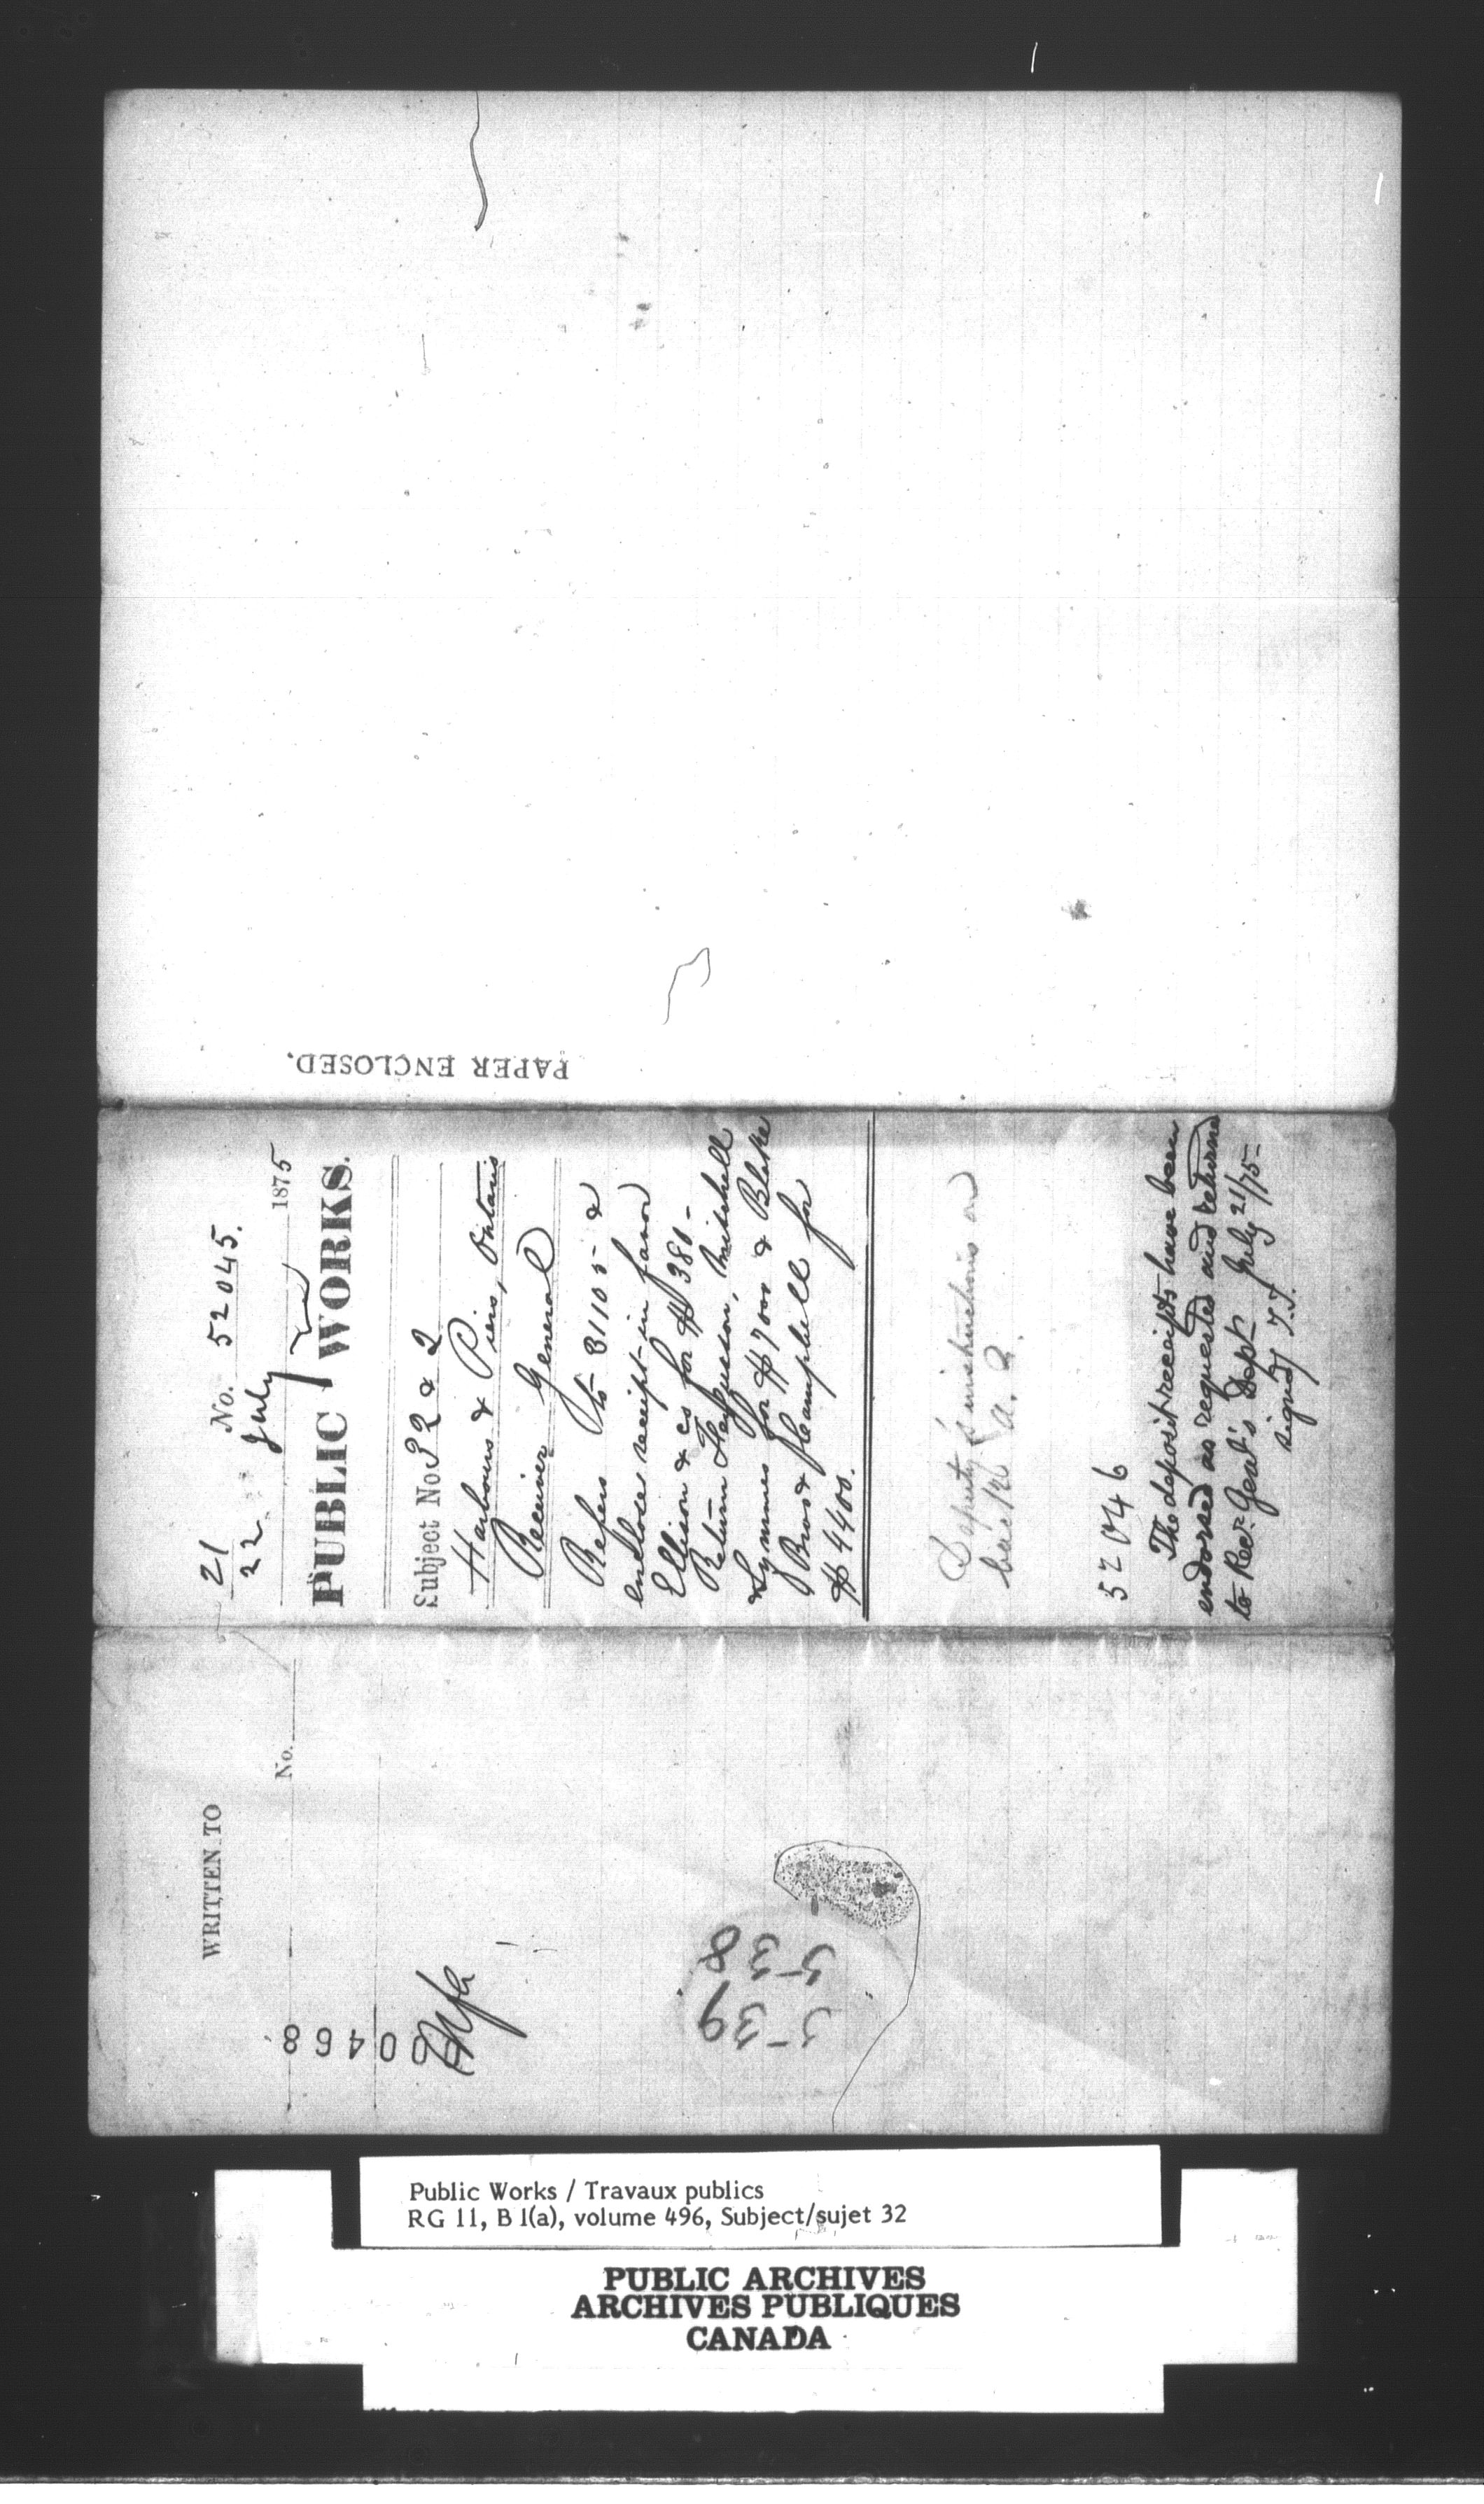 PAPER ENCLOSED.
No. 52045.
21
22 July 1875
PUBLIC WORKS.
Subject No 32 & 2
Harbours & Piers, Ontario
Receiver General
Refers to 31105 &
encloses receipt in favor
Ellison & co for $380-
Return Ferguson, Mitchell
& Symmes for $7000 & Blake
Bros & Campbell for
$4400.
Deputy's instructions on
back
52046
The deposit receipts have been
endorsed as requested and returned
to Rec. Genl's Dept July 21/75-
signed
WRITTEN TO
No.
00468
538
539
Public Works / Travaux publics
RG 11, B 1(a), volume 496, Subject/sujet 32
PUBLIC ARCHIVES
ARCHIVES PUBLIQUES
CANADA